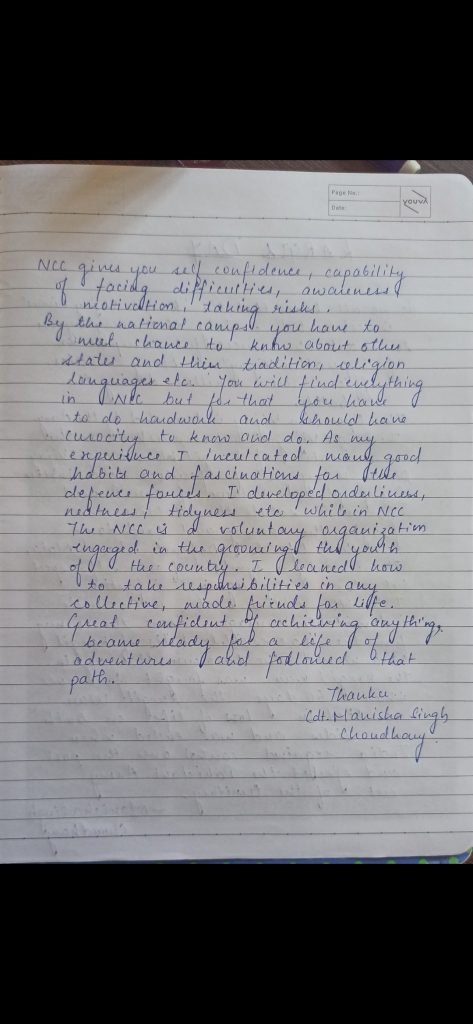 Page No.:
Date:
YOUVA
NCC gives you self confidence, capability
of facing difficulties, awareness
motivation, taking risks.
By the national camps you have to
meet chance to know about other
states and thier tradition, religion
languages etc. You will find everything
in NCC but for that you have
to do hardwork and should have
curocity to know and do. As my
experience I inculcated many good
habits and fascinations for the
defence forces. I developed orderliness,
neatness, tidyness etc while in NCC
The NCC is a voluntary organization
engaged in the grooming the youth
of the country. I leaned how
to take responsibilities in any
collective, made friends for life.
Great confident of achieving anything,
became ready for a life of
adventures and followed that
path.
Thanku
Cdt. Manisha Singh
Choudhary